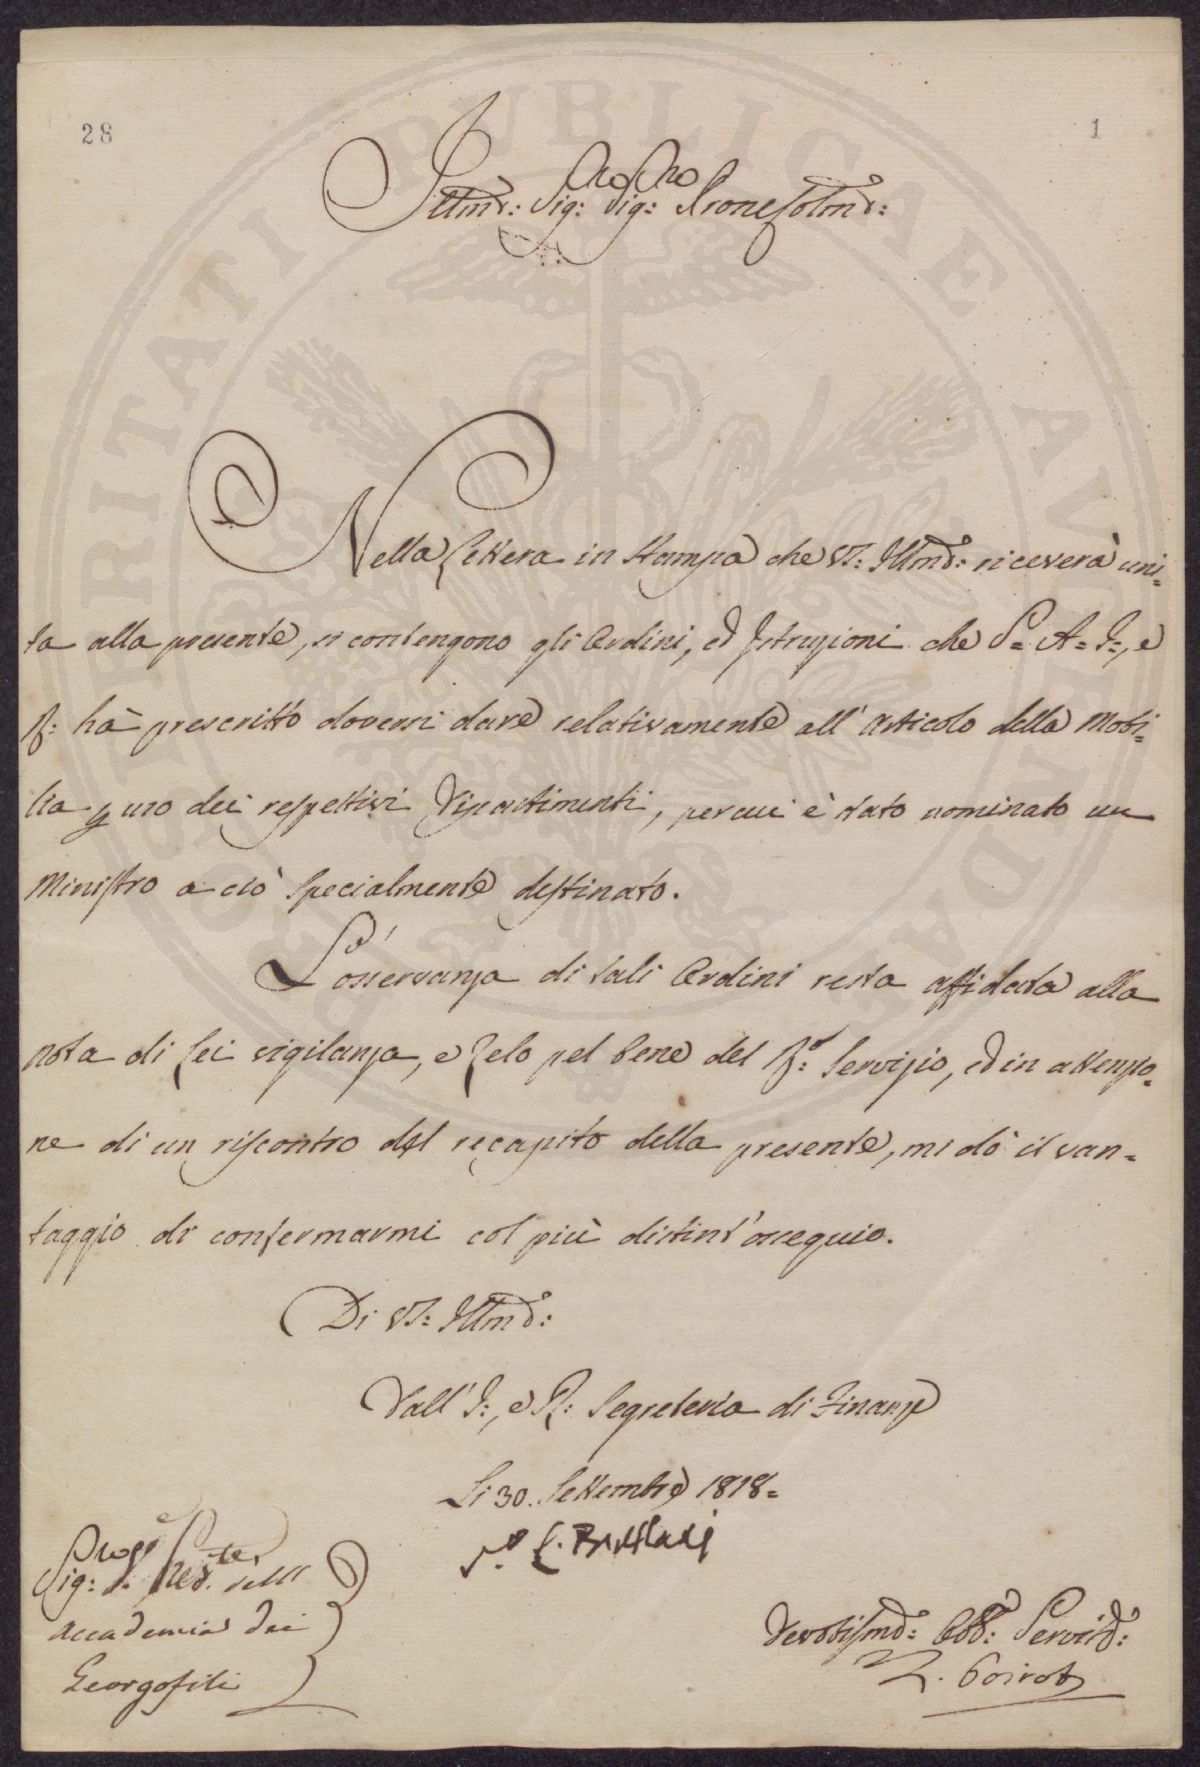 28
1
Illmo: Sig: Sig: Prone Colmo:
Nella Lettera in Stampa che VS: Illma: riceverà uni=
ta alla presente, si contengono gli Ordini, ed Istruzioni che S= A= I=, e
R: hà prescritto doversi dare relativamente all' Articolo della Mobi=
lia per uso dei respettivi Dipartimenti, per cui è stato nominato un
Ministro a ciò specialmente destinato.
L'osservanza di tali Ordini resta affidata alla
nota di Lei vigilanza, e Zelo pel bene del Rl: Servizio, ed in attenzio=
ne di un riscontro del recapito della presente, mi dò il van=
taggio di confermarmi col più distint'ossequio.
Di VS: Illma:
Dall' I:, e R: Segreteria di Finanze
Li 30. Settembre 1818=
Sig: Presidte dell'
Accademia dei
Georgofili
Devotissmo: Obb: Servid:
PUBLICAE